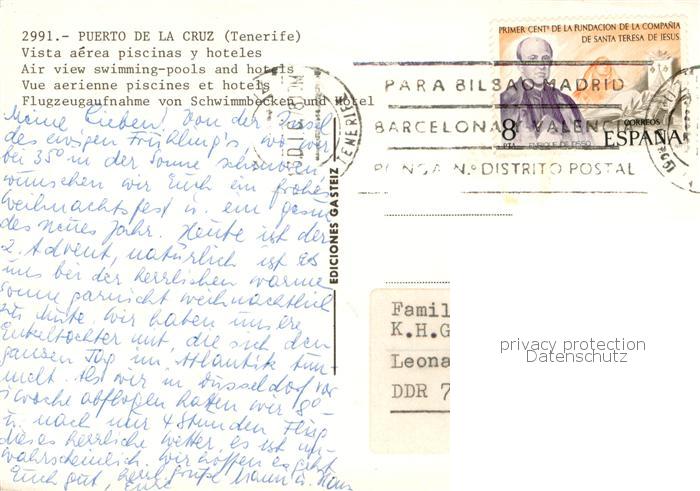 2991.- PUERTO DE LA CRUZ (Tenerife)
Vista aérea piscinas y hoteles
Air view swimming-pools and hotels
Vue aerienne piscines et hotels
Flugzeugaufnahme von Schwimmbecken und Hotel
Meine Lieben! Von der Insel
des ewigen Frühling's, wo wir
bei 35° in der Sonne schmoren
wünschen wir Euch ein frohes
Weihnachtsfest u. ein gesun
des neues Jahr. Heute ist der
2. Advent, natürlich ist es
uns bei der herrlichen warmen
Sonne garnicht weihnachtlich
zu Mute. Wir haben unsere
Enkeltochter mit, die sich den
ganzen Tag im Atlantik tum
melt. Als wir in Düsseldorf vor
1 Woche abflogen hatten wir 8°
u. nach nur 4 Stunden Flug
dieses herrliche Wetter, es ist un-
wahrscheinlich. Wir hoffen es geht
Euch gut, herzl. Grüße
EDICIONES GASTEIZ
PRIMER CENTº DE LA FUNDACION DE LA COMPAÑIA
DE SANTA TERESA DE JESUS
8 PTA
ENRIQUE DE OSSO
CORREOS
ESPAÑA
TENERIFE
PARA BILBAO MADRID
BARCELONA VALENCIA
PONGA Nº DISTRITO POSTAL
Famil
K.H.G
Leona
DDR 7
privacy protection
Datenschutz